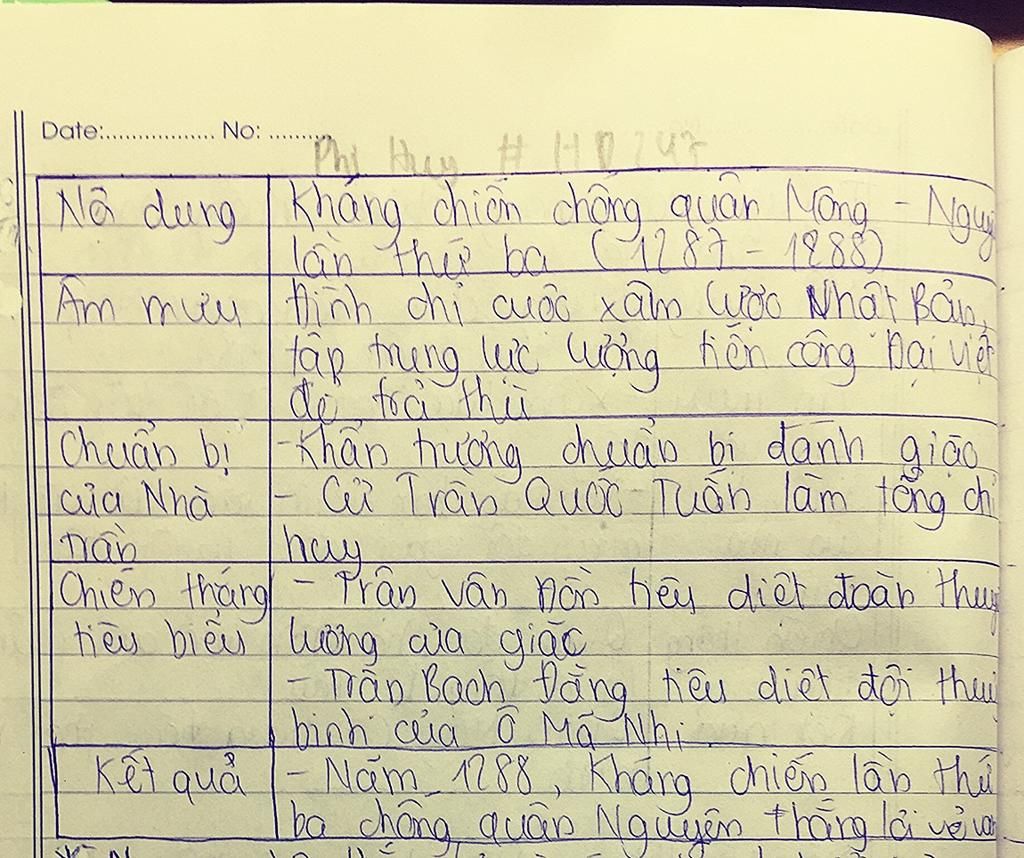 Date:................. No: .........
Phi Huy # HD247
Nội dung
Kháng chiến chống quân Mông - Nguy
lần thứ ba (1287 - 1288)
Âm mưu
Đình chỉ cuộc xâm lược Nhật Bản,
tập trung lực lượng tiến công Đại Việt
để trả thù
Chuẩn bị
của Nhà
Trần
- Khẩn trương chuẩn bị đánh giặc
- Cử Trần Quốc Tuấn làm tổng chỉ
huy
Chiến thắng
tiêu biểu
- Trận Vân Đồn tiêu diệt đoàn thuy
lương của giặc
- Trận Bạch Đằng tiêu diệt đội thuỷ
binh của Ô Mã Nhi.
Kết quả
- Năm 1288, Kháng chiến lần thứ
ba chống quân Nguyên thắng lợi vẻ van